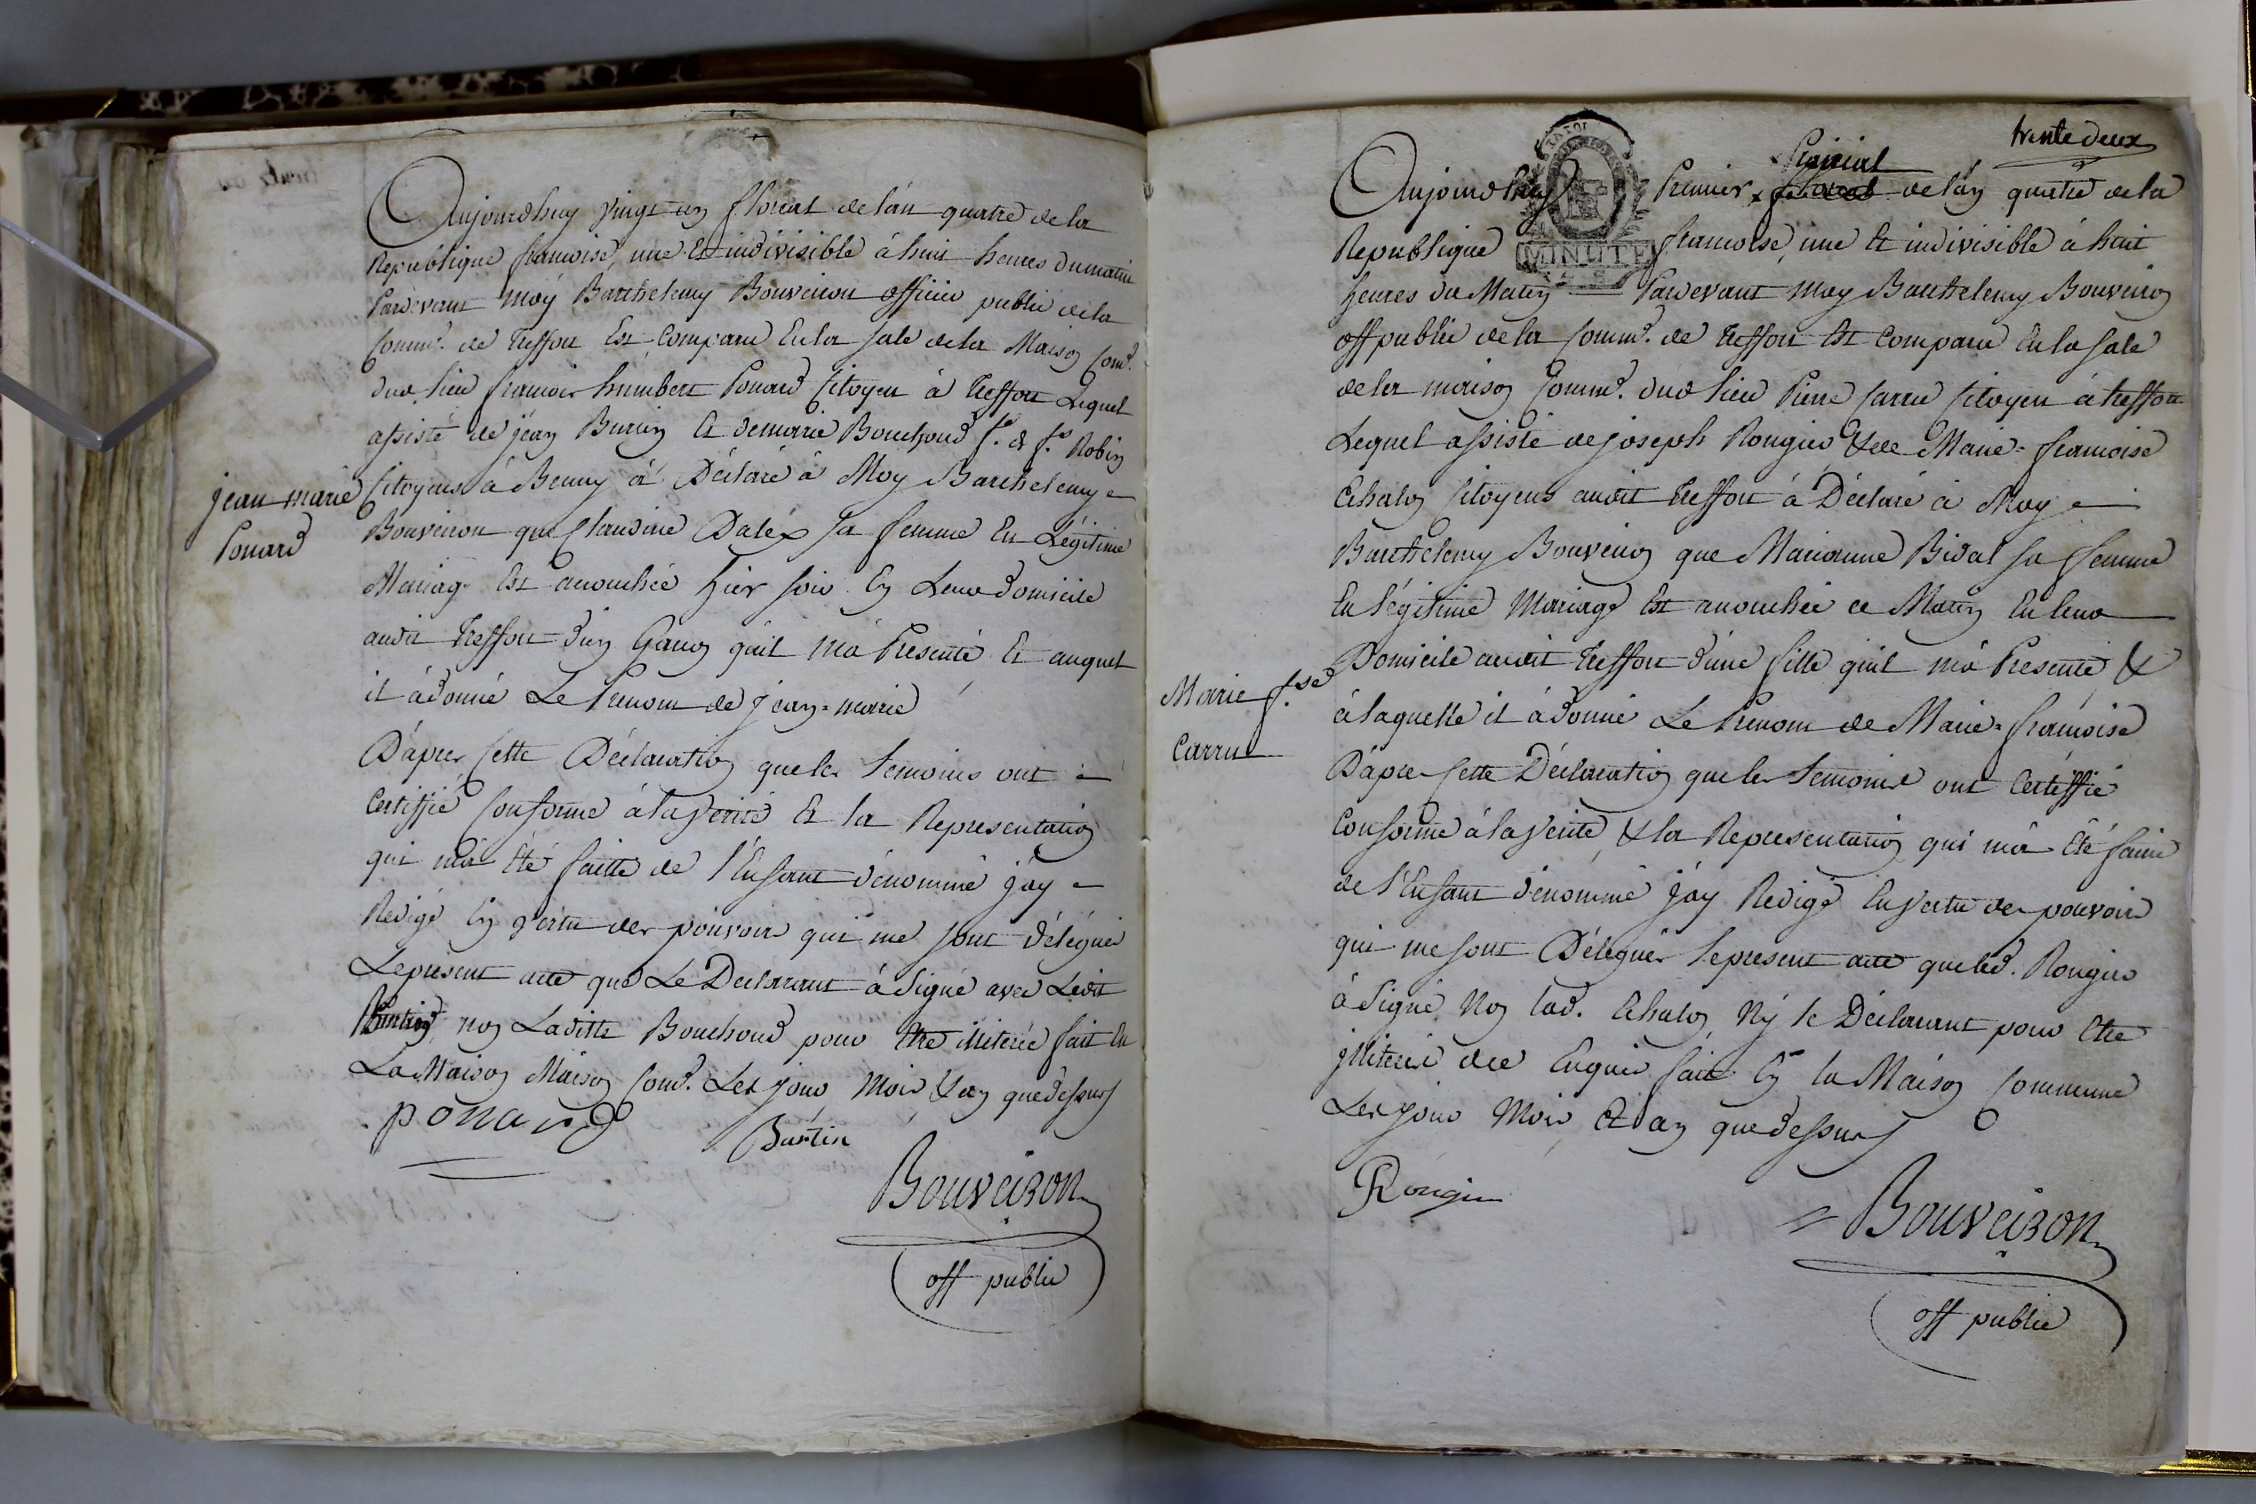 Aujourdhuy vingt un floreal de l'an quatre de la
Republique francoise, une et indivisible à huit heures du matin
Pardevant moy Barthelemy Bouveiron officier public de la
Comm.e de Treffort Est comparu En la sale de la Maison Com.e
dud. lieu francois humbert Ponard Citoyen à Treffort Lequel
assisté de jean Burtin Et de marie Bouchoud f.e de f.s Robin
Citoyens à Beny à Déclaré à Moy Barthelemy
Bouveiron que Claudine Daléx sa femme En Légitime
Mariage Est accouchée hier soir En Leur Domicile
audit Treffort D'un Garçon qu'il m'à Presenté Et auquel
il à donné Le Prenom de jean=marie
jean marie
Ponard
D'après Cette Déclaration que les temoins ont
Certiffié Conforme à la verité Et la Representation
qui m'à Eté faitte de l'Enfant dénommé j'ay
Redigé En vertu des pouvoirs qui me sont délégués
Le présent acte que Le Declarant à signé avec Ledit
Burtin, non Laditte Bouchoud pour Etre illiterée fait En
La Maison Maison Com.e Les jour Mois & an que dessus
ponard
Burtin
Bouveiron
off public
trente deux
Prairial
Aujourdhuy Premier floreal de l'an quatre de la
MINUTE
Republique francoise, une Et indivisible à huit
heures du Matin Pardevant moy Barthelemy Bouveiron
off public de la Comm.e de Treffort Est comparu En la sale
de la maison Comm.e dud. lieu Pierre Carru Citoyen à treffort
Lequel assisté de joseph Rougier & de Marie=francoise
Chalon Citoyens audit Treffort à Déclaré à Moy
Barthelemy Bouveiron que Marianne Bidal sa femme
En légitime Mariage Est accouchée ce Matin En leur
Domicile audit Treffort d'une fille qu'il m'à Presenté &
à laquelle il à donné Le Prenom de Marie=francoise
Marie f.se
Carru
D'après Cette Déclaration que les temoins ont Certiffié
Conforme à la verité, & la Representation qui m'à Eté faitte
de l'Enfant dénommé j'ay Redigé En vertu des pouvoirs
qui me sont Délégués le present acte que led. Rougier
à signé, Non lad. Chalon Ny le Déclarant pour Etre
jlliterés de Enquis fait En la Maison Commune
Les jour Mois, Et an que dessus
Rougier
Bouveiron
off public